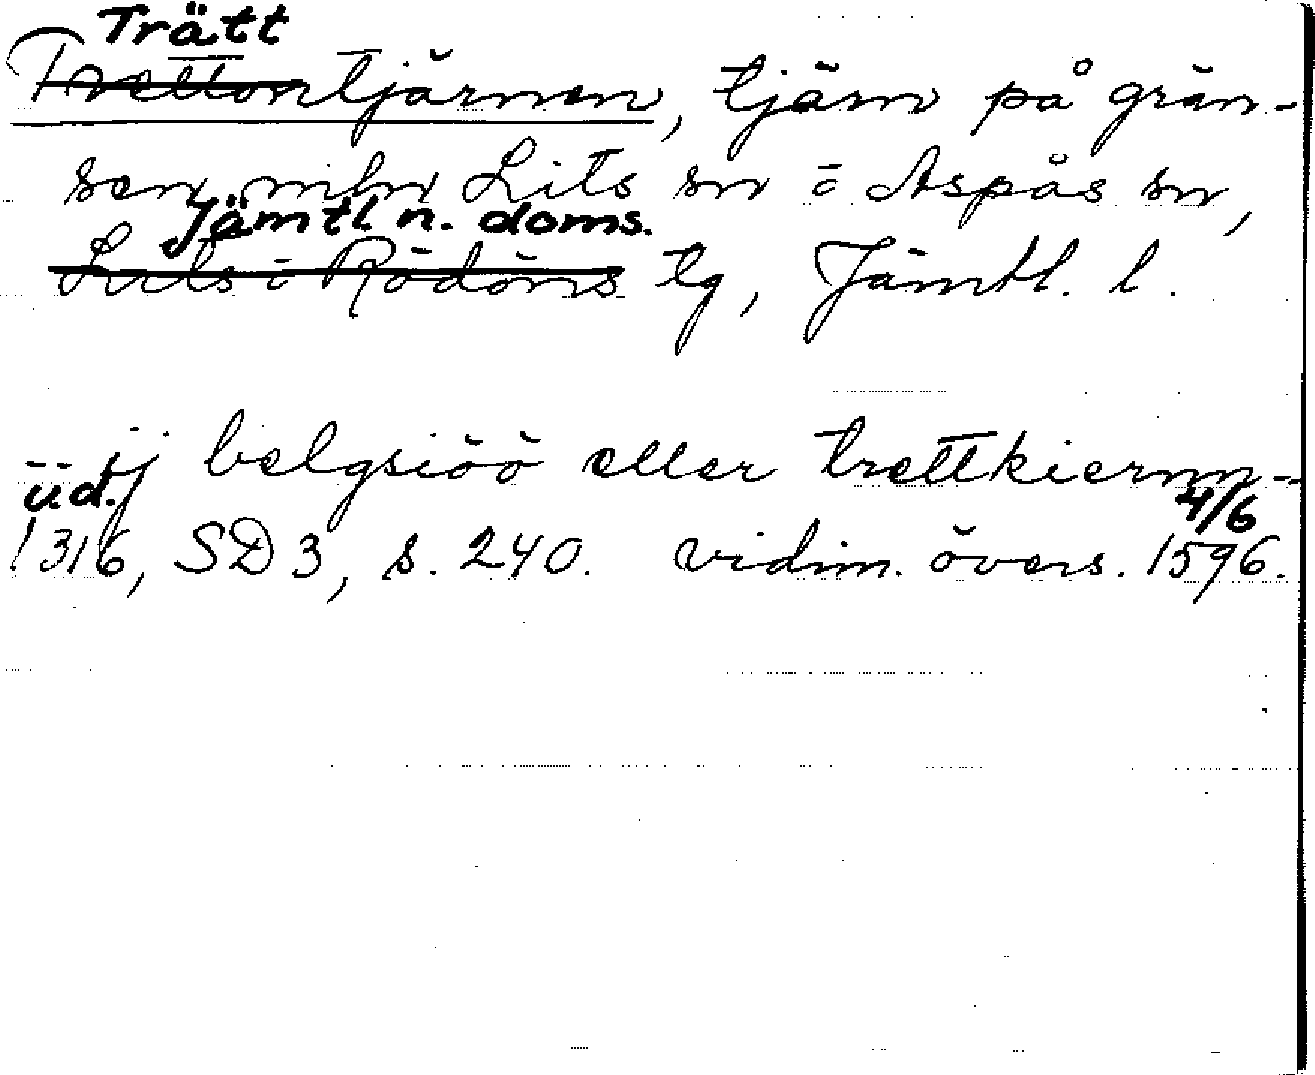 Trätt
Trettontjärnen, tjärn på grän-
sen mln Lits sn o Aspås sn,
Jämtl n. doms.
Lits o Rödöns tg, Jämtl. l.
ij belgsiöö eller trettkiernn-
u.d.
4/6
1316, SD 3, s. 240. vidim. övers. 1596.